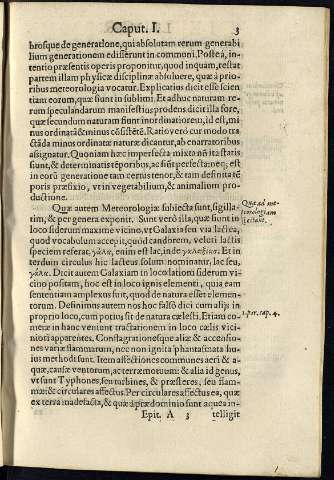 Caput. I. 3
brosque de generatione, qui absolutam rerum generabi
lium generationem edisserunt in communi. Postea, in-
tentio præsentis operis proponitur, quod inquam, restat
partem illam physicæ disciplinæ absoluere, quæ à priori-
bus meteorologia vocatur. Explicatius dicit esse scien
tiam eorum, quæ sunt in sublimi. Et adhuc naturam re-
rum speculandarum manifestius prodens dicit illa fore,
quæ secundum naturam fiunt inordinatiorem, id est, mi
nus ordinatā & minus cōsistētē. Ratio verò cur modo tra
ctāda minus ordinatæ naturæ dicantur, ab enarratoribus
assignatur. Quoniam hæc imperfecta mixta nō ita statis
sunt, & determinatis tēporibus, ac sūt perfecta: nec est
in eorū generatione tam certus tenor, & tam definita tē
poris præfixio, vt in vegetabilium, & animalium pro-
ductione.
Quæ autem Meteorologiæ subiecta sunt, sigilla-
tim, & per genera exponit. Sunt verò illa, quæ fiunt in
loco siderum maxime vicino, vt Galaxia seu via lactea,
quod vocabulum accepit, quòd candorem, veluti lactis
speciem referat. γάλα, enim est lac, inde γαλαξίας. Et in
terdum circulus hic lacteus solùm nominatur, lac seu,
γάλα. Dicit autem Galaxiam in loco statiom siderum vi-
cino positam, hoc est in loco ignis elementi, quia eam
sententiam amplexus fuit, quod de natura esset elemen-
torum. Definimus autem nos hoc falsò dici cum alibi in
proprio loco, cum potius sit de natura cælesti. Etiam co-
metæ in hanc veniunt tractationem in loco cælis vici-
niori apparentes. Conflagrationesque aliæ & accensio-
nes variæ flammarum, nec non ignita phantasmata hu-
ius methodi sunt. Item affectiones communes aeri & a-
quæ, causæ ventorum, ac terræmotuum: & alia id genus,
vt sunt Typhones, seu turbines, & præsteres, seu flam-
mæ: & circulares affectus. Per circulares affectus ea, quæ
ex terra madefacta, & quæ ipsæ dominio sunt aquea in-
Epit. A 3 telligit
Quæ ad me-
teorologiam
spectant.
1. par. cap. 4.